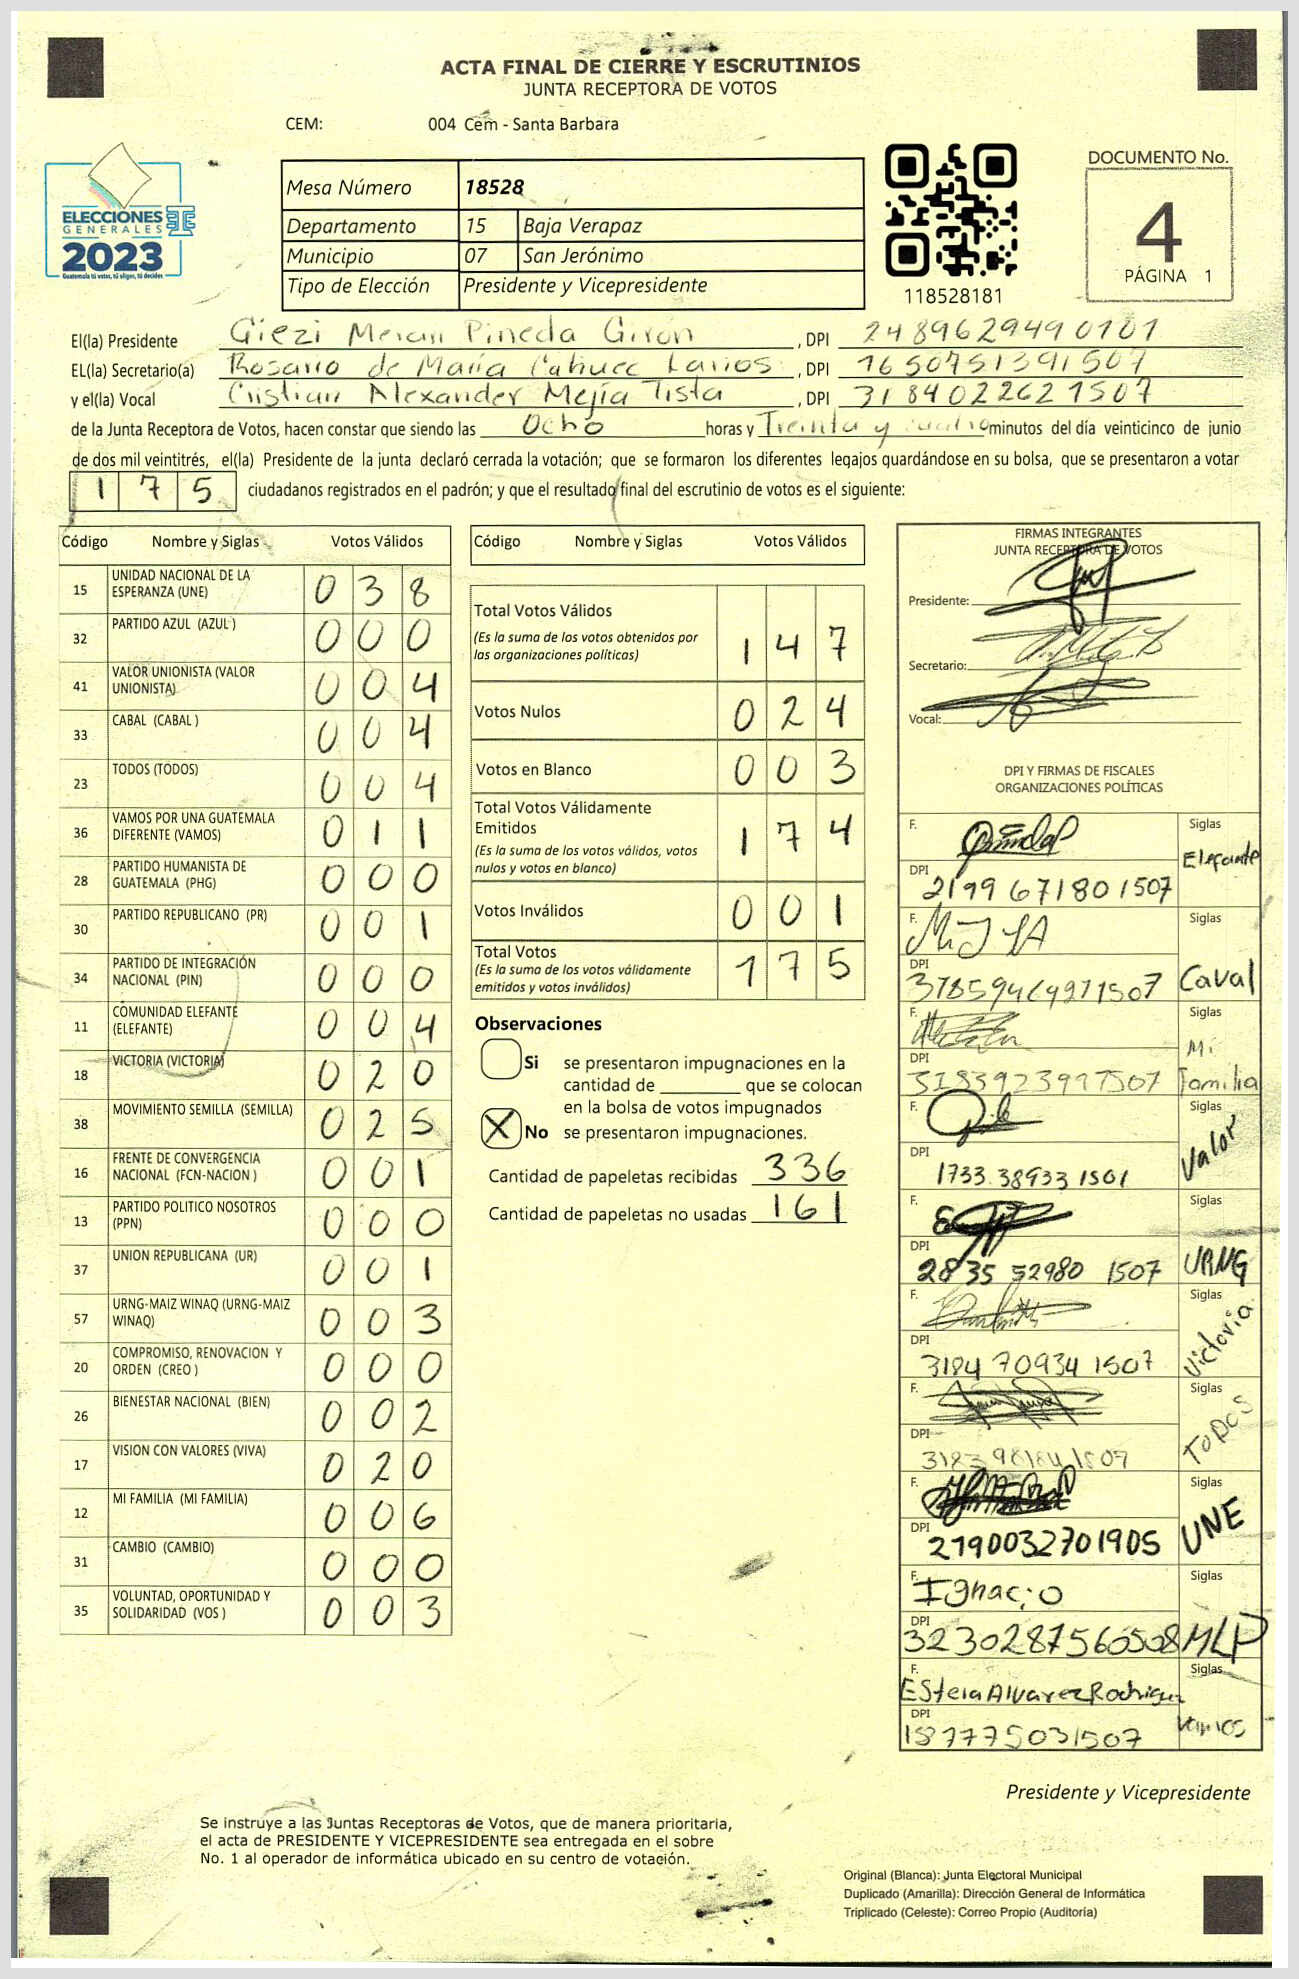 ACTA FINAL DE CIERRE Y ESCRUTINIOS
JUNTA RECEPTORA DE VOTOS
CEM: 004 Cem - Santa Barbara
ELECCIONES
GENERALES
2023
Guatemala tú votas, tú eliges, tú decides
Mesa Número 18528
Departamento 15 Baja Verapaz
Municipio 07 San Jerónimo
Tipo de Elección Presidente y Vicepresidente
118528181
DOCUMENTO No.
4
PÁGINA 1
El(la) Presidente Giezi Meran Pineda Girón, DPI 2489629490101
EL(la) Secretario(a) Rosario de María Cahuec Larios, DPI 1650751391507
y el(la) Vocal Cristian Alexander Mejía Tista, DPI 3184022621507
de la Junta Receptora de Votos, hacen constar que siendo las Ocho horas y Treinta y cuatro minutos del día veinticinco de junio
de dos mil veintitrés, el(la) Presidente de la junta declaró cerrada la votación; que se formaron los diferentes legajos guardándose en su bolsa, que se presentaron a votar
175 ciudadanos registrados en el padrón; y que el resultado final del escrutinio de votos es el siguiente:
Código Nombre y Siglas Votos Válidos
15 UNIDAD NACIONAL DE LA ESPERANZA (UNE) 038
32 PARTIDO AZUL (AZUL ) 000
41 VALOR UNIONISTA (VALOR UNIONISTA) 004
33 CABAL (CABAL ) 004
23 TODOS (TODOS) 004
36 VAMOS POR UNA GUATEMALA DIFERENTE (VAMOS) 011
28 PARTIDO HUMANISTA DE GUATEMALA (PHG) 000
30 PARTIDO REPUBLICANO (PR) 001
34 PARTIDO DE INTEGRACIÓN NACIONAL (PIN) 000
11 COMUNIDAD ELEFANTE (ELEFANTE) 004
18 VICTORIA (VICTORIA) 020
38 MOVIMIENTO SEMILLA (SEMILLA) 025
16 FRENTE DE CONVERGENCIA NACIONAL (FCN-NACION ) 001
13 PARTIDO POLITICO NOSOTROS (PPN) 000
37 UNION REPUBLICANA (UR) 001
57 URNG-MAIZ WINAQ (URNG-MAIZ WINAQ) 003
20 COMPROMISO, RENOVACION Y ORDEN (CREO ) 000
26 BIENESTAR NACIONAL (BIEN) 002
17 VISION CON VALORES (VIVA) 020
12 MI FAMILIA (MI FAMILIA) 006
31 CAMBIO (CAMBIO) 000
35 VOLUNTAD, OPORTUNIDAD Y SOLIDARIDAD (VOS ) 003
Código Nombre y Siglas Votos Válidos
Total Votos Válidos 147
(Es la suma de los votos obtenidos por
las organizaciones políticas)
Votos Nulos 024
Votos en Blanco 003
Total Votos Válidamente
Emitidos 174
(Es la suma de los votos válidos, votos
nulos y votos en blanco)
Votos Inválidos 001
Total Votos 175
(Es la suma de los votos válidamente
emitidos y votos inválidos)
Observaciones
Si se presentaron impugnaciones en la
cantidad de ________ que se colocan
en la bolsa de votos impugnados
X No se presentaron impugnaciones.
Cantidad de papeletas recibidas 336
Cantidad de papeletas no usadas 161
FIRMAS INTEGRANTES
JUNTA RECEPTORA DE VOTOS
Presidente:
Secretario:
Vocal:
DPI Y FIRMAS DE FISCALES
ORGANIZACIONES POLÍTICAS
F. Siglas
Elefante
DPI 2199671801507
F. Siglas
Caval
DPI
F. Siglas
Mi
Familia
DPI 3183923991507
F. Siglas
Valor
DPI 1733.38933 1501
F. Siglas
URNG
DPI 2835 52980 1507
F. Siglas
Victoria
DPI 3184 70934 1507
F. Siglas
TODOS
DPI
F. Siglas
UNE
DPI 2190032701905
F. Ignacio Siglas
MLP
DPI 3230287560508
F. Estela Alvarez Rodrigu Siglas
Vamos
DPI 187775031507
Presidente y Vicepresidente
Se instruye a las Juntas Receptoras de Votos, que de manera prioritaria,
el acta de PRESIDENTE Y VICEPRESIDENTE sea entregada en el sobre
No. 1 al operador de informática ubicado en su centro de votación.
Original (Blanca): Junta Electoral Municipal
Duplicado (Amarilla): Dirección General de Informática
Triplicado (Celeste): Correo Propio (Auditoría)